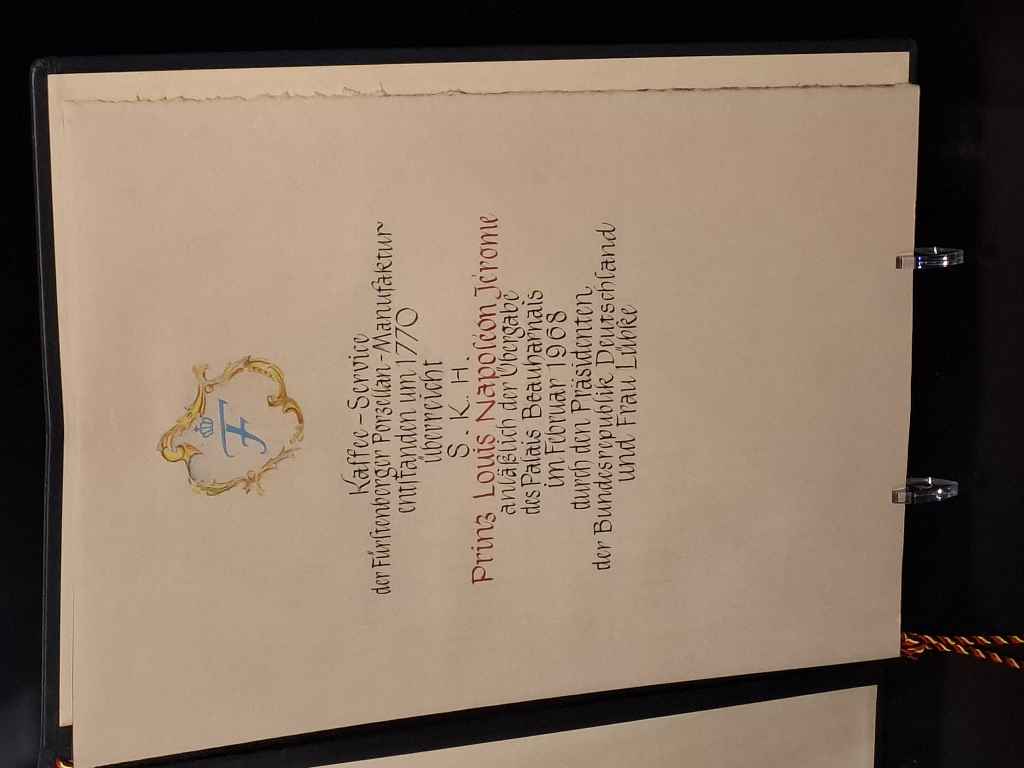 F
Kaffee-Service
der Fürstenberger Porzellan-Manufaktur
entstanden um 1770
überreicht
S. K. H.
Prinz Louis Napoléon Jérome
anläßlich der Übergabe
des Palais Beauharnais
im Februar 1968
durch den Präsidenten
der Bundesrepublik Deutschland
und Frau Lübke